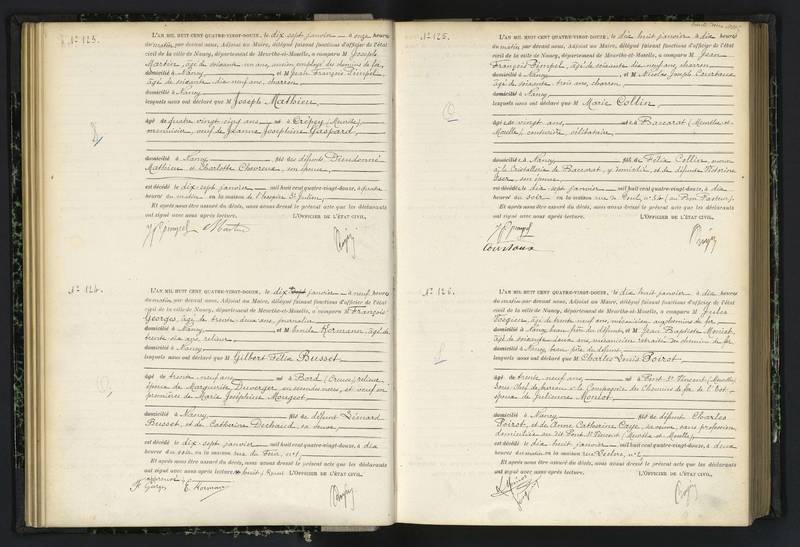 N° 123.
L'AN MIL HUIT CENT QUATRE-VINGT-DOUZE, le dix sept janvier à onze heures
du matin, par devant nous, Adjoint au Maire, délégué faisant fonctions d'officier de l'état
civil de la ville de Nancy, département de Meurthe-et-Moselle, a comparu M Joseph
Martin, âgé de soixante un ans, ancien employé des chemins de fer,
domicilié à Nancy et M Jean François Pimpel,
âgé de soixante dix neuf ans, charron,
domicilié à Nancy
lesquels nous ont déclaré que M Joseph Mathieu
âgé de quatre vingt ans né à Crépey (Meurthe),
menuisier, veuf de Jeanne Joséphine Gaspard,
domicilié à Nancy fils des défunts Dieudonné
Mathieu et Charlotte Chevreux, son épouse,
est décédé le dix sept janvier mil huit cent quatre-vingt-douze, à
heures du matin en la maison de l'hospice St Julien,
Et après nous être assuré du décès, nous avons dressé le présent acte que les déclarants
ont signé avec nous après lecture. L'OFFICIER DE L'ÉTAT CIVIL,
Martin
N° 124.
L'AN MIL HUIT CENT QUATRE-VINGT-DOUZE, le dix janvier à neuf heures
du matin, par devant nous, Adjoint au Maire, délégué faisant fonctions d'officier de l'état
civil de la ville de Nancy, département de Meurthe-et-Moselle, a comparu M François
Georges, âgé de trente deux ans, journalier
domicilié à Nancy et M Emile Hormann, âgé de
trente six ans, relieur
domicilié à Nancy
lesquels nous ont déclaré que M Gilbert Félix Busset
âgé de trente neuf ans né à Bord (Creuse), relieur
époux de Marguerite Duverger en secondes noces, et veuf en
premières de Marie Joséphine Mougeot
domicilié à Nancy fils de défunt Léonard
Busset, et de Catherine sa veuve,
est décédé le dix sept janvier mil huit cent quatre-vingt-douze, à dix
heures du soir en la maison rue du Four, n° 1,
Et après nous être assuré du décès, nous avons dressé le présent acte que les déclarants
ont signé avec nous après lecture. L'OFFICIER DE L'ÉTAT CIVIL,
F Georges E. Hormann
N° 125.
L'AN MIL HUIT CENT QUATRE-VINGT-DOUZE, le dix huit janvier à dix heures
du matin, par devant nous, Adjoint au Maire, délégué faisant fonctions d'officier de l'état
civil de la ville de Nancy, département de Meurthe-et-Moselle, a comparu M Jean
François Pimpel, âgé de soixante dix neuf ans, charron
domicilié à Nancy et M Nicolas Joseph Courtoux
âgé de soixante trois ans, charron,
domicilié à Nancy
lesquels nous ont déclaré que M Marie Collin,
âgée de vingt ans, née à Baccarat (Meurthe et
Moselle), couturière célibataire
domiciliée à Nancy fille de Félix Collin,
à la Cristallerie de Baccarat, y domicilié, et de défunte Victorine
son épouse
est décédée le dix sept janvier mil huit cent quatre-vingt-douze, à dix
heures du soir en la maison rue de Toul, n° (au Bon Pasteur)
Et après nous être assuré du décès, nous avons dressé le présent acte que les déclarants
ont signé avec nous après lecture. L'OFFICIER DE L'ÉTAT CIVIL,
Courtoux
N° 126.
L'AN MIL HUIT CENT QUATRE-VINGT-DOUZE, le dix huit janvier à dix heures
du matin, par devant nous, Adjoint au Maire, délégué faisant fonctions d'officier de l'état
civil de la ville de Nancy, département de Meurthe-et-Moselle, a comparu M Jules
âgé de trente neuf ans, mécanicien au chemin de fer,
domicilié à Nancy, beau frère du défunt, et M Jean Baptiste Moniot,
âgé de soixante deux ans, mécanicien retraité du chemin de fer
domicilié à Nancy, beau père du défunt
lesquels nous ont déclaré que M Charles Louis Poirot
âgé de trente neuf ans né à Pont St Vincent (Meurthe)
Sous Chef de bureau à la Compagnie des Chemins de fer de l'Est,
époux de Julienne Moniot,
domicilié à Nancy fils de défunt Charles
Poirot, et de Anne Catherine sa veuve, sans profession,
domiciliée au dit Pont St Vincent (Meurthe et Moselle),
est décédé le dix huit janvier mil huit cent quatre-vingt-douze, à deux
heures du matin en la maison rue Leclerc, n°
Et après nous être assuré du décès, nous avons dressé le présent acte que les déclarants
ont signé avec nous après lecture. L'OFFICIER DE L'ÉTAT CIVIL,